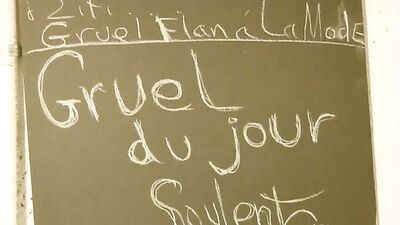 Gruel Flan á La Mode
Gruel
du jour
Soylent